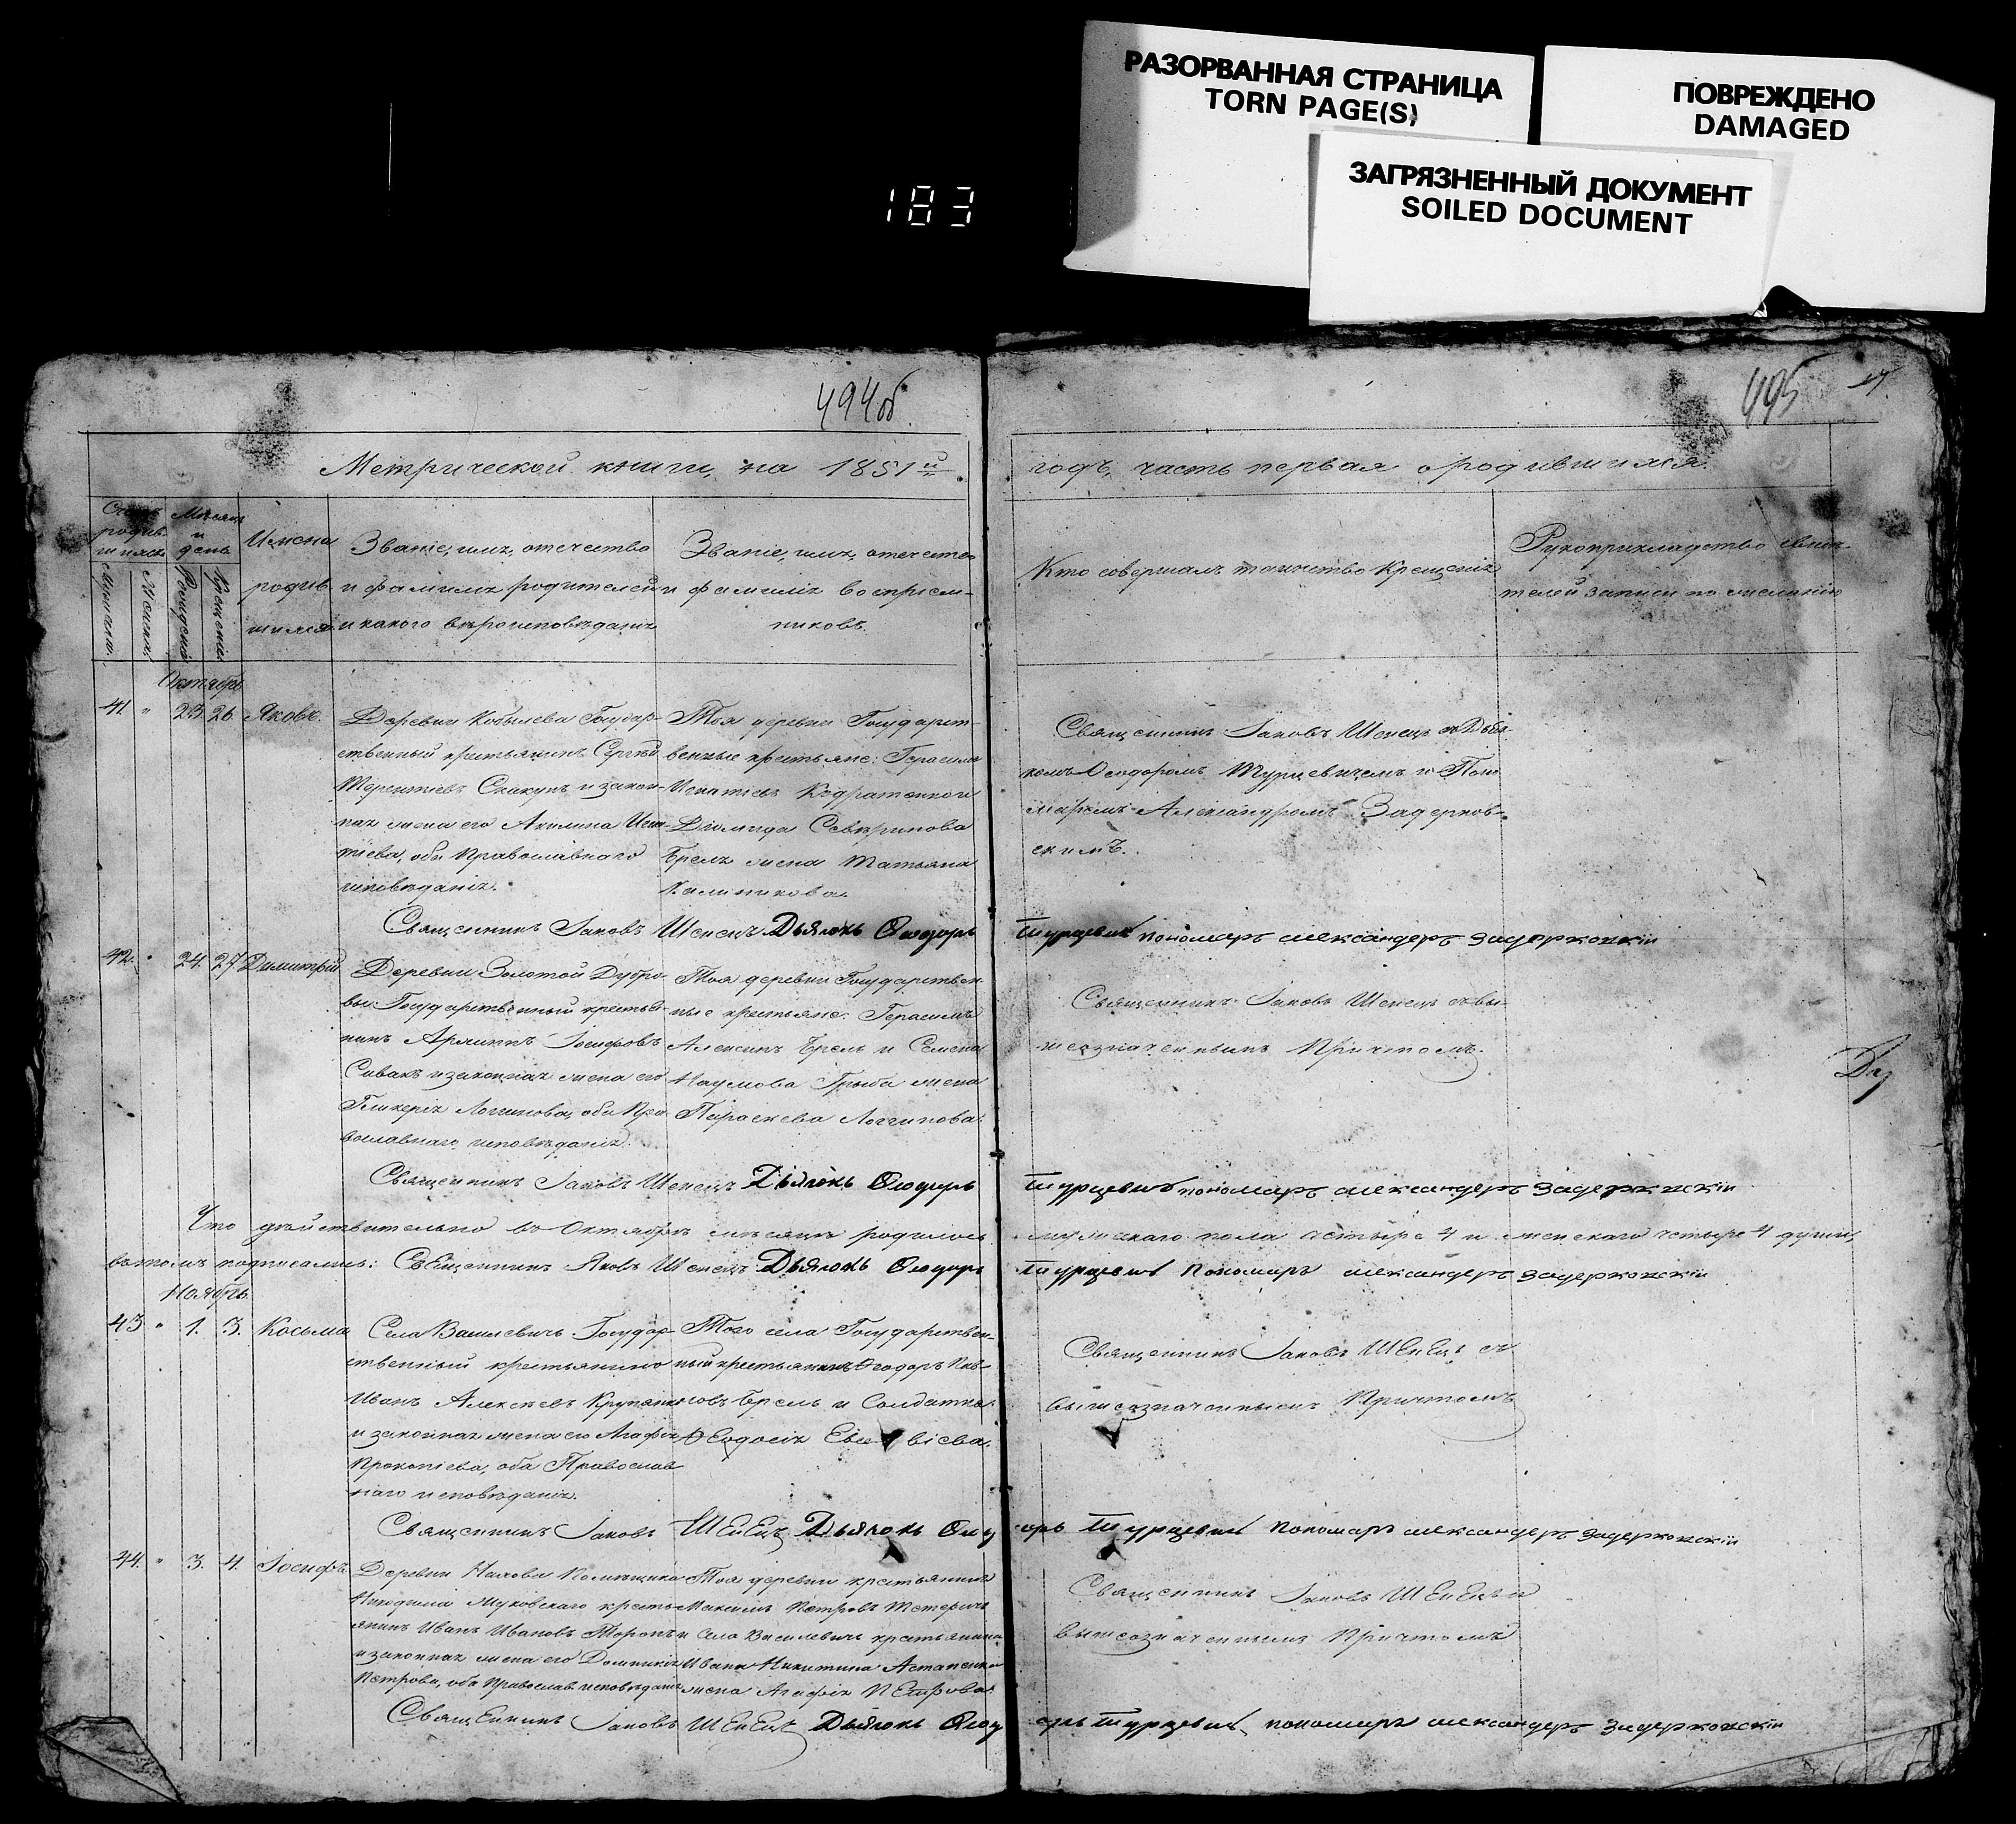 РАЗОРВАННАЯ СТРАНИЦА
TORN PAGE(S)
ПОВРЕЖДЕНО
DAMAGED
ЗАГРЯЗНЕННЫЙ ДОКУМЕНТ
SOILED DOCUMENT
183
494об.
495
Метрической книги, на 1851й
годъ, часть первая о родившихся.
Счетъ родив-шихся
Мужеска.
Женска.
Мѣсяцъ и день
Рожденія
Крещенія
Имена
родив
шихся
Званіе, имя, отчество
и фамилія родителей
и какого вѣроисповѣданія
Званіе, имя, отчество
и фамилія воспріем-
никовъ.
Кто совершалъ таинство Крещенія
Рукоприкладство свидѣ-
телей записи по желанію
Октябрь
41. " 23. 26. Яковъ.
Деревни Кобылева Государ-
ственный крестьянинъ Сергѣй
Терентіевъ Скакунъ и закон-
ная жена его Акилина Игна-
тіева, оба Православнаго
исповѣданія.
Тоя деревни Государст-
венные крестьяне: Герасимъ
Игнатіевъ Кодратенко и
Діомида Севѣринова
Брель жена Татьяна
Калиникова.
Священникъ Іаковъ Шенецъ съ Дья-
комъ Ѳеодоромъ Турцевичемъ и Поно
маремъ Александромъ Задерков-
скимъ.
Священникъ Іаковъ Шенецъ Дьячокъ Ѳеодоръ Турцевичъ пономаръ александеръ задерковскіи
42. " 24. 27. Димитрій
Деревни Золотой Дубро-
вы Государственный крестья-
нинъ Іосифовъ
Сивакъ и законная жена его
Гликерія Логгинова, оба Пра-
вославнаго исповѣданія.
Тоя деревни Государствен-
ные крестьяне: Герасимъ
Алексинъ Брель и Семена
Наумова Грыба жена
Параскева Логгинова.
Священникъ Іаковъ Шенецъ съ вы-
шеозначеннымъ Причтомъ.
Священникъ Іаковъ Шенецъ Дьячокъ Ѳеодоръ Турцевичъ пономаръ александеръ задерковскіи
Что дѣйствительно въ Октябрѣ мѣсяцѣ родилось мужескаго пола четыре 4 и женскаго четыре 4 души,
въ томъ подписались: Священникъ Яковъ Шенецъ Дьячокъ Ѳеодоръ Турцевичъ Пономаръ александеръ задерковскіи
Ноябрь.
43 " 1. 3. Косьма
Села Василевичъ Государ-
ственный крестьянинъ
Иванъ Алексѣевъ
и законная жена его Агафія
Прокопіева, оба Православ
наго исповѣданія.
Того села Государствен-
ный крестьянинъ Ѳеодоръ
Брель и Солдатка
Ѳеодосія
Священникъ Іаковъ Шенецъ съ
вышеозначеннымъ Причтомъ
Священникъ Іаковъ Шенецъ Дьячокъ Ѳеодоръ Турцевичъ пономаръ александеръ задерковскіи
44. " 3. 4. Іосифъ.
Деревни Помѣщика
крестья-
янинъ Иванъ Ивановъ
и законная жена его Домникія
Петрова, оба Православ. исповѣданія
Тоя деревни крестьянинъ
Максимъ Петровъ
и Села Василевичъ крестьянина
Ивана Никитина Астапенка
жена Агафія Петрова.
Священникъ Іаковъ Шенецъ съ
вышеозначеннымъ Причтомъ
Священникъ Іаковъ Шенецъ Дьячокъ Ѳеодоръ Турцевичъ пономаръ александеръ задерковскіи